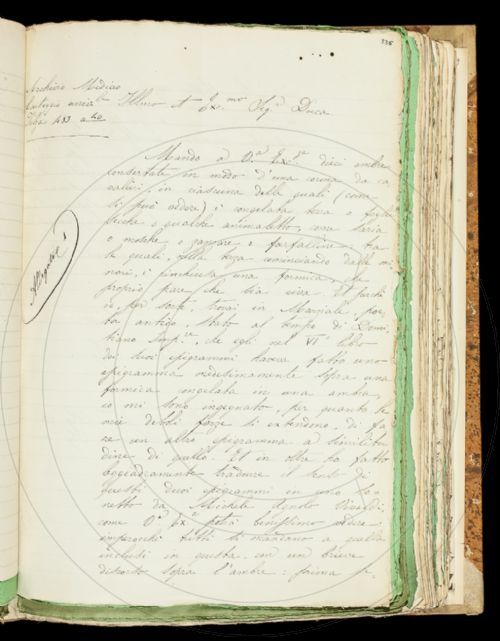 338
Archivio Mediceo
Illmo et Ex.mo Sig.r Duca
433 a
Mando a V.a Ex.a dieci ambre
in modo d'una corona da ca
valieri, in ciascuna delle quali (come
si può vedere) è congelata terra o foglie
secche o qualche animaletto, come saria
o mosche o zanzare o farfalline: tra
le quali, nella terza cominciando dalle mi
nori, è rinchiusa una formica, che
proprio pare che sia viva. Et perchè
io, per sorte, trovai in Marziale, poe
ta antico, stato al tempo di Domi
tiano Imp.re, che egli nel VI libro
de' suoi epigrammi haveva fatto uno
epigramma medesimamente sopra una
formica congelata in una ambra,
io mi sono ingegnato, per quanto le
mie deboli forze si extendono, di fa
re un altro epigramma a similitu
dine di quello. Et in oltre ho fatto
leggiadramente tradurre il senso di
questi duoi epigrammi in uno So
netto da Michele Agnolo Vivaldi,
come V.a Ex.a potrà benissimo vedere
imperochè tutti si mandano a quella
inclusi in questa, con un breve
discorso sopra l'ambre: prima
Allegato 1